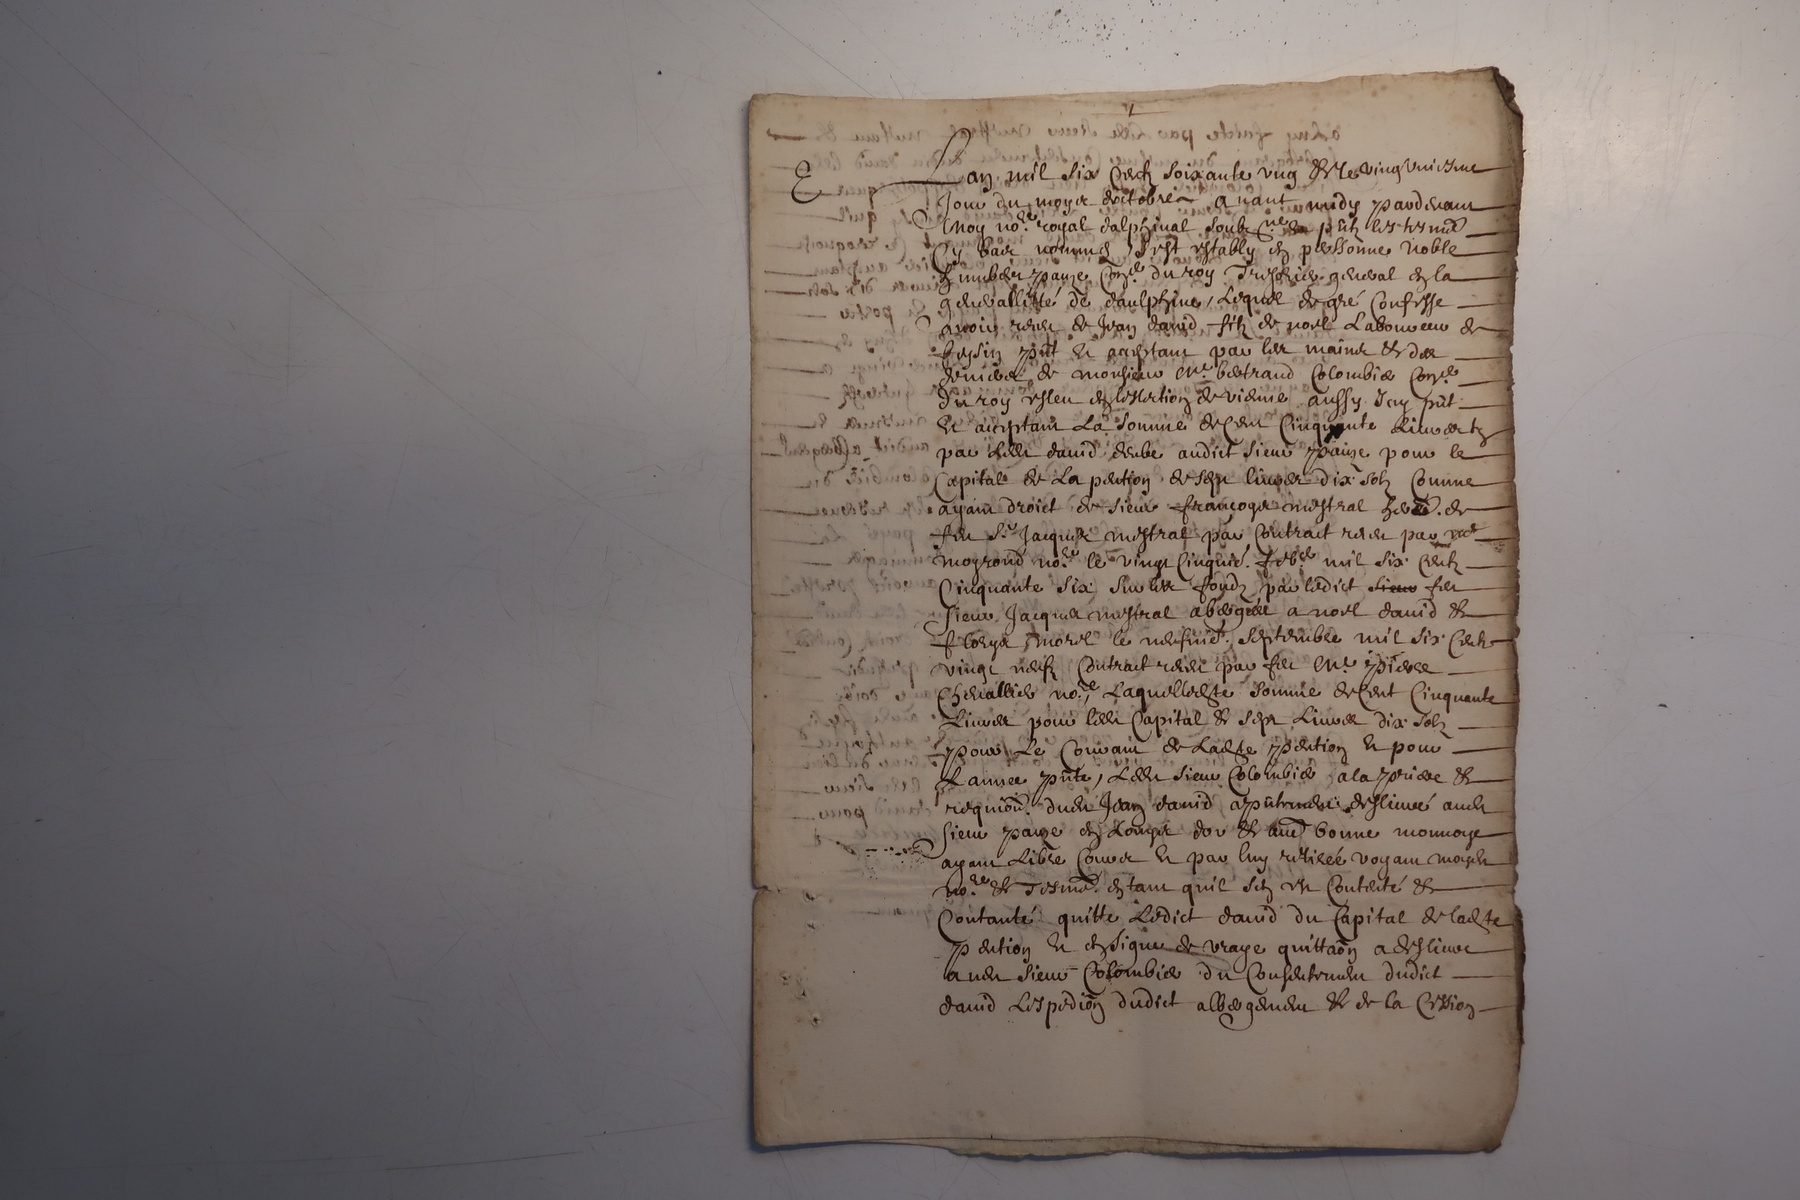 Lan mil six centz soixante ung et le vingt uniesme
Jour du moys doctobre avant midy pardevant
Moy no.re royal dalphinal soubz.ne & pntz les tesm.
Cy bas nommes sest estably en personne noble
humbert pauze Con.er du roy Tresorier general en la
generallitté de daulphine, Lequel de gré Confesse
avoir receu de Jean david filz de noel Laboureur de
pnt et acceptant par les mains & des
deniers de monsieur Me. bertrand Colombier Con.er
du roy esleu en leslection de vienne aussy Icy pnt
Et acceptant La somme de Cent Cinquante Livres
par Ledit david deube audict sieur pauze pour le
Capital de La pention de sept livres dix solz Comme
ayant droict de sieur françoys mestral de
feu Sr. Jacques mestral par Contract receu par me
moyroud no.re le vingt Cinquie. feb. mil six Centz
Cinquante six sur les fondz par ledict sieur feu
sieur Jacques mestral abergées a noel david &
morel le neufvie. septembre mil six Centz
vingt neufz Contract receu par feu Me. pierre
Chevallier no.re, Laquelle dte somme de Cent Cinquante
Livres pour ledit Capital & sept Livres dix solz
pour Le Courant de Ladte pention Et pour
Lannee pnte, Ledit sieur Colombier a la priere &
requion. dudit Jean david a pntement deslivré audit
sieur pauze en Louys dor & aue bonne monnoye
ayant Libre Cours Et par luy retirée voyant moydit
no.re & Tesms. en tant quil sen est Contenté &
Contante quitte Ledict david du Capital de ladte
pention Et en signe de vraye quittaon a deslivré
audit sieur Colombier du Consentement dudict
david Lespedion dudict albergement & de la Cession